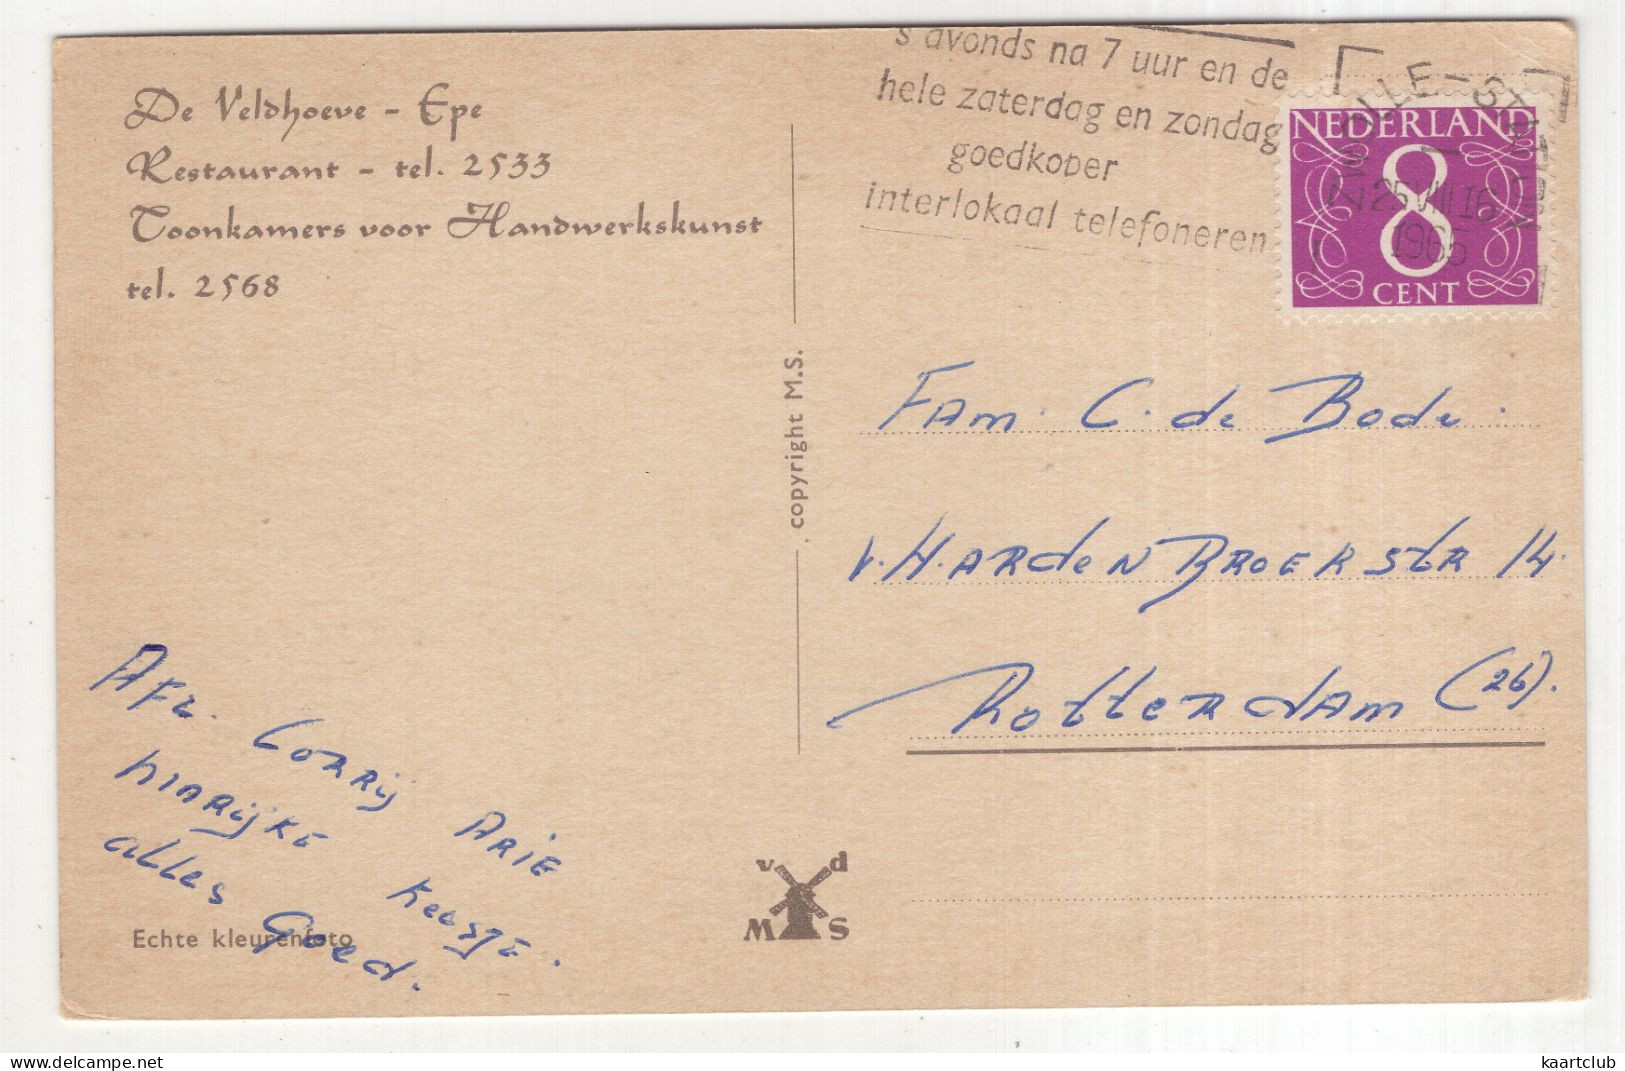 De Veldhoeve - Epe
Restaurant - tel. 2533
Toonkamers voor Handwerkskunst
tel. 2568
's avonds na 7 uur en de
hele zaterdag en zondag
goedkoper
interlokaal telefoneren
ZWOLLE-STATION
25 VIII 16
1965
NEDERLAND
8
CENT
copyright M.S.
Fam. C. de Bode.
v. Hardenbroekstr 14.
Rotterdam (26).
Afz. Corrij Arie
Marijke Keesje.
alles Goed.
Echte kleurenfoto
v d
M S
kaartclub